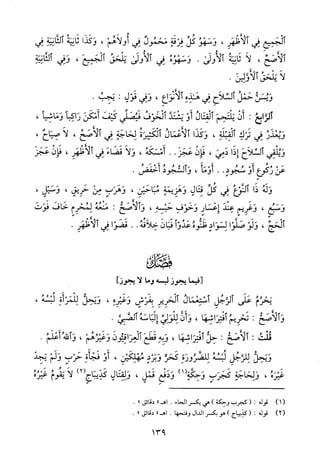 الْجَمِيعِ فِي الْأَظْهَرِ ، وَسَهْوُ كُلِّ فِرْقَةٍ مَحْمُولٌ فِي أُولَاهُمْ ، وَكَذَا ثَانِيَةُ الثَّانِيَةِ فِي
الْأَصَحِّ ، لَا ثَانِيَةُ الْأُولَى . وَسَهْوُهُ فِي الْأُولَى يَلْحَقُ الْجَمِيعَ ، وَفِي الثَّانِيَةِ
لَا يَلْحَقُ الْأَوَّلِينَ .
وَيُسَنُّ حَمْلُ السِّلَاحِ فِي هَذِهِ الْأَنْوَاعِ ، وَفِي قَوْلٍ : يَجِبُ .
الرَّابِعُ : أَنْ يَلْتَحِمَ الْقِتَالُ أَوْ يَشْتَدَّ الْخَوْفُ فَيُصَلِّي كَيْفَ أَمْكَنَ رَاكِبًا وَمَاشِيًا ،
وَيُعْذَرُ فِي تَرْكِ الْقِبْلَةِ ، وَكَذَا الْأَعْمَالُ الْكَثِيرَةُ لِحَاجَةٍ فِي الْأَصَحِّ ، لَا صِيَاحٌ ،
وَيُلْقِي السِّلَاحَ إِذَا دَمِيَ ، فَإِنْ عَجَزَ .. أَمْسَكَهُ ، وَلَا قَضَاءَ فِي الْأَظْهَرِ ، فَإِنْ عَجَزَ
عَنْ رُكُوعٍ أَوْ سُجُودٍ .. أَوْمَأَ ، وَالسُّجُودُ أَخْفَضُ .
وَلَهُ ذَا النَّوْعُ فِي كُلِّ قِتَالٍ وَهَزِيمَةٍ مُبَاحَيْنِ ، وَهَرَبٍ مِنْ حَرِيقٍ ، وَسَيْلٍ ،
وَسَبُعٍ ، وَغَرِيمٍ عِنْدَ إِعْسَارٍ وَخَوْفِ حَبْسِهِ ، وَالْأَصَحُّ : مَنْعُهُ لِمُحْرِمٍ خَافَ فَوْتَ
الْحَجِّ ، وَلَوْ صَلَّوْا لِسَوَادٍ ظَنُّوهُ عَدُوًّا فَبَانَ خِلَافُهُ .. قَضَوْا فِي الْأَظْهَرِ .
فَصْلٌ
[فيما يجوز لبسه وما لا يجوز]
يَحْرُمُ عَلَى الرَّجُلِ اسْتِعْمَالُ الْحَرِيرِ بِفَرْشٍ وَغَيْرِهِ ، وَيَحِلُّ لِلْمَرْأَةِ لُبْسُهُ ،
وَالْأَصَحُّ : تَحْرِيمُ افْتِرَاشِهَا ، وَأَنَّ لِلْوَلِيِّ إِلْبَاسَهُ الصَّبِيَّ .
قُلْتُ : الْأَصَحُّ : حِلُّ افْتِرَاشِهَا ، وَبِهِ قَطَعَ الْعِرَاقِيُّونَ وَغَيْرُهُمْ ، وَاللهُ أَعْلَمُ .
وَيَحِلُّ لِلرَّجُلِ لُبْسُهُ لِلضَّرُورَةِ كَحَرٍّ وَبَرْدٍ مُهْلِكَيْنِ ، أَوْ فُجَاءَةِ حَرْبٍ وَلَمْ يَجِدْ
غَيْرَهُ ، وَلِحَاجَةٍ كَجَرَبٍ وَحِكَّةٍ(١) وَدَفْعِ قَمْلٍ ، وَلِقِتَالٍ كَدِيبَاجٍ(٢) لَا يَقُومُ غَيْرُهُ
(١) قوله : ( كجرب وحكة ) هي بكسر الحاء . اهـ « دقائق » .
(٢) قوله : ( كديباج ) هو بكسر الدال وفتحها . اهـ « دقائق » .
١٣٩